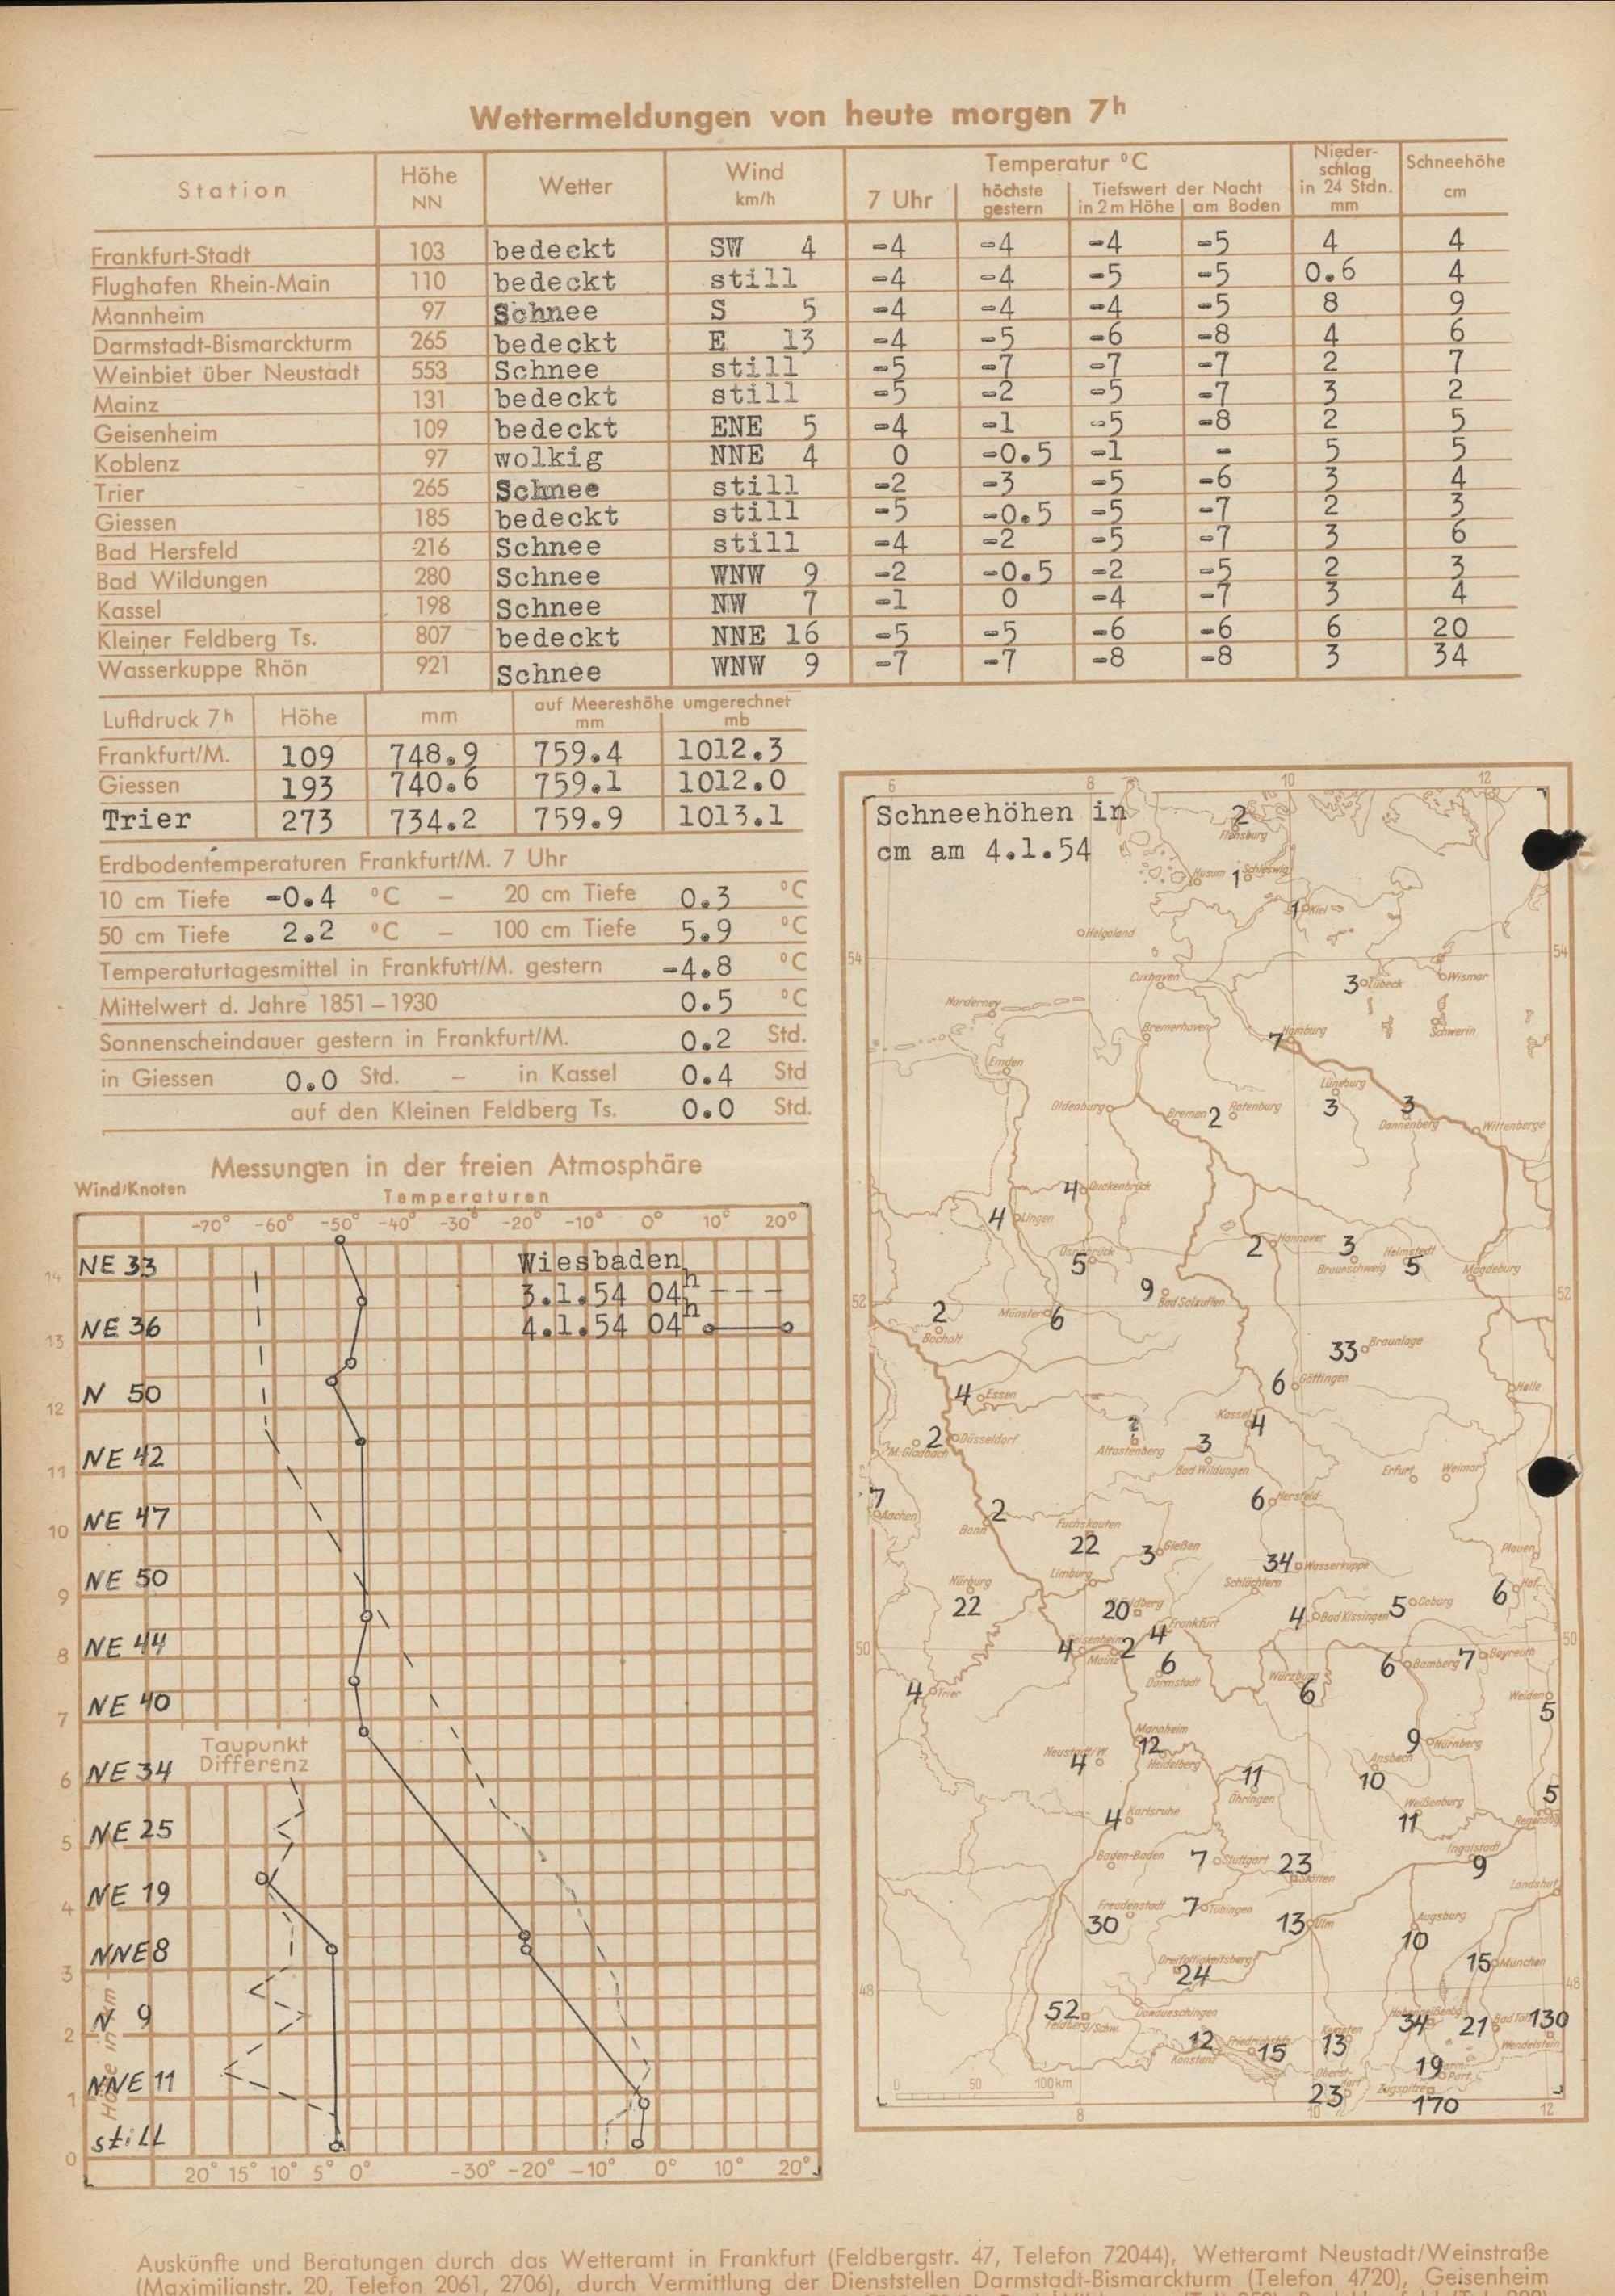 Wettermeldungen von heute morgen 7h
Station Höhe NN Wetter Wind km/h Temperatur °C Nieder-schlag in 24 Stdn. mm Schneehöhe cm
7 Uhr höchste gestern Tiefswert der Nacht in 2m Höhe am Boden
Frankfurt-Stadt 103 bedeckt SW 4 -4 -4 -4 -5 4 4
Flughafen Rhein-Main 110 bedeckt still -4 -4 -5 -5 0.6 4
Mannheim 97 Schnee S 5 -4 -4 -4 -5 8 9
Darmstadt-Bismarckturm 265 bedeckt E 13 -4 -5 -6 -8 4 6
Weinbiet über Neustadt 553 Schnee still -5 -7 -7 -7 2 7
Mainz 131 bedeckt still -5 -2 -5 -7 3 2
Geisenheim 109 bedeckt ENE 5 -4 -1 -5 -8 2 5
Koblenz 97 wolkig NNE 4 0 -0.5 -1 - 5 5
Trier 265 Schnee still -2 -3 -5 -6 3 4
Giessen 185 bedeckt still -5 -0.5 -5 -7 2 3
Bad Hersfeld 216 Schnee still -4 -2 -5 -7 3 6
Bad Wildungen 280 Schnee WNW 9 -2 -0.5 -2 -5 2 3
Kassel 198 Schnee NW 7 -1 0 -4 -7 3 4
Kleiner Feldberg Ts. 807 bedeckt NNE 16 -5 -5 -6 -6 6 20
Wasserkuppe Rhön 921 Schnee WNW 9 -7 -7 -8 -8 3 34
Luftdruck 7h Höhe mm auf Meereshöhe umgerechnet mm mb
Frankfurt/M. 109 748.9 759.4 1012.3
Giessen 193 740.6 759.1 1012.0
Trier 273 734.2 759.9 1013.1
Erdbodentemperaturen Frankfurt/M. 7 Uhr
10 cm Tiefe -0.4 °C – 20 cm Tiefe 0.3 °C
50 cm Tiefe 2.2 °C – 100 cm Tiefe 5.9 °C
Temperaturtagesmittel in Frankfurt/M. gestern -4.8 °C
Mittelwert d. Jahre 1851 – 1930 0.5 °C
Sonnenscheindauer gestern in Frankfurt/M. 0.2 Std.
in Giessen 0.0 Std. – in Kassel 0.4 Std
auf den Kleinen Feldberg Ts. 0.0 Std.
Messungen in der freien Atmosphäre
Wind/Knoten Temperaturen
-70° -60° -50° -40° -30° -20° -10° 0° 10° 20°
NE 33 Wiesbaden
14 3.1.54 04h ---
NE 36 4.1.54 04h
13
N 50
12
NE 42
11
NE 47
10
NE 50
9
NE 44
8
NE 40
7
Taupunkt
Differenz
NE 34
6
NE 25
5
NE 19
4
NNE 8
3
N 9
2
NNE 11
1
still
0
Höhe in km
20° 15° 10° 5° 0° -30° -20° -10° 0° 10° 20°
6 8 10 12
Schneehöhen in
cm am 4.1.54
2 Flensburg
Husum 1 Schleswig
1 Kiel
Helgoland
54 54
Cuxhaven 3 Lübeck Wismar
Norderney
Bremerhaven 7 Hamburg Schwerin
Emden
Lüneburg 3
Oldenburg Bremen 2 Rotenburg 3 Dannenberg Wittenberge
4 Quakenbrück
4 Lingen
Osnabrück 5 2 Hannover 3 Braunschweig Helmstedt 5 Magdeburg
9 Bad Salzuflen
52 52
2 Bocholt Münster 6
33 Braunlage
4 Essen 6 Göttingen Halle
Kassel 4
M-Gladbach 2 Düsseldorf Altastenberg 3 Bad Wildungen
Erfurt Weimar
7 Aachen 2 Bonn 6 Hersfeld
Fuchskauten 22 3 Gießen
34 Wasserkuppe Plauen
Nürburg 22 Limburg Schlüchtern
20 Feldberg 4 Frankfurt 4 Bad Kissingen 5 Coburg 6 Hof
50 50
4 Geisenheim 2 Mainz 6 Darmstadt 6 Bamberg 7 Bayreuth
4 Trier Würzburg 6 Weiden 5
Mannheim 12 Heidelberg 9 Nürnberg
Neustadt/W. 4 11 Öhringen Ansbach 10
Weißenburg 11 5 Regensbg
4 Karlsruhe
Baden-Baden 7 Stuttgart 23 Stötten Ingolstadt 9
Landshut
Freudenstadt 30 7 Tübingen 13 Ulm Augsburg 10
Dreifaltigkeitsberg 24 15 München
48 48
52 Feldberg/Schw. Donaueschingen Hohenpeißenbg. 34 21 Bad Tölz 130 Wendelstein
12 Konstanz Friedrichshfn. 15 Kempten 13
19 Garm-Part.
Oberst-dorf 23 Zugspitze 170
0 50 100 km
8 10 12
Auskünfte und Beratungen durch das Wetteramt in Frankfurt (Feldbergstr. 47, Telefon 72044), Wetteramt Neustadt/Weinstraße
(Maximilianstr. 20, Telefon 2061, 2706), durch Vermittlung der Dienststellen Darmstadt-Bismarckturm (Telefon 4720), Geisenheim